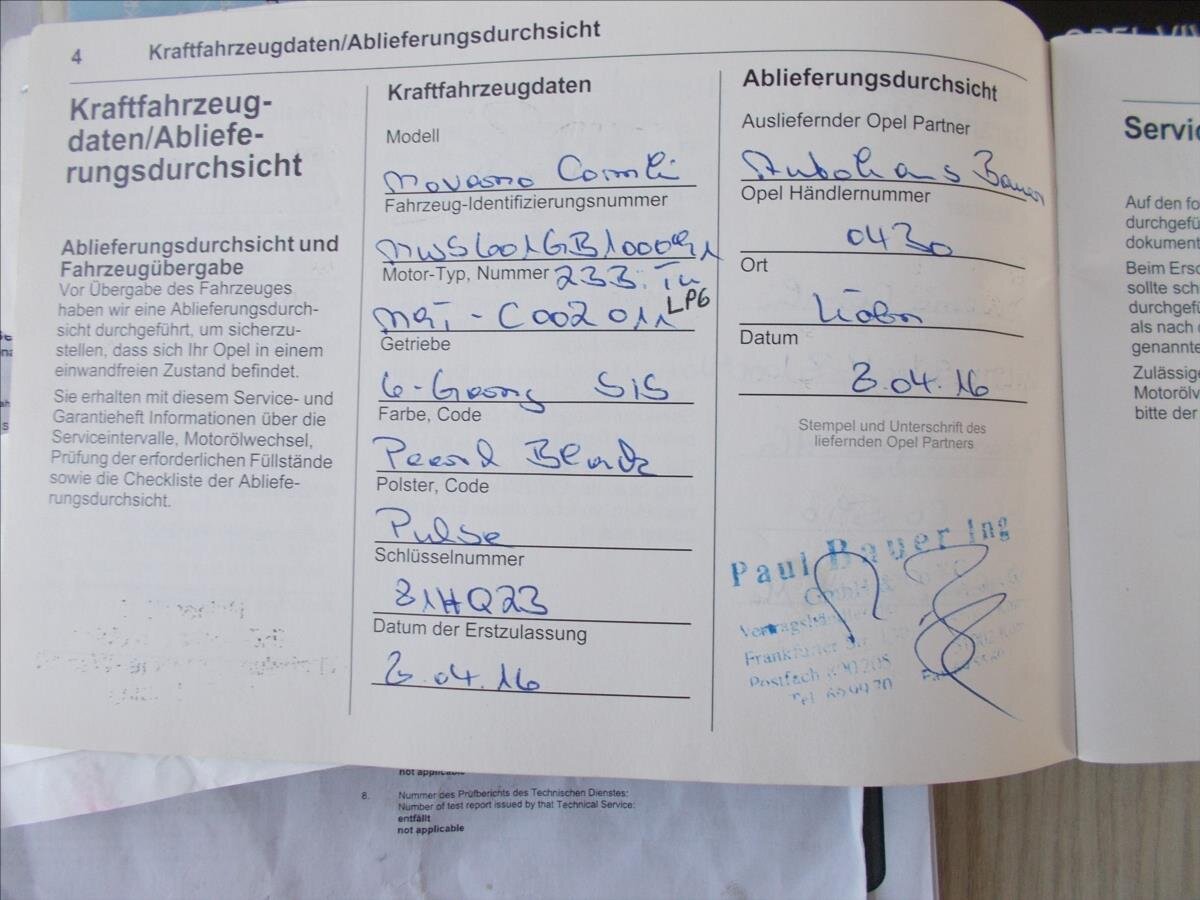 4 Kraftfahrzeugdaten/Ablieferungsdurchsicht
Kraftfahrzeug-
daten/Abliefe-
rungsdurchsicht
Ablieferungsdurchsicht und
Fahrzeugübergabe
Vor Übergabe des Fahrzeuges
haben wir eine Ablieferungsdurch-
sicht durchgeführt, um sicherzu-
stellen, dass sich Ihr Opel in einem
einwandfreien Zustand befindet.
Sie erhalten mit diesem Service- und
Garantieheft Informationen über die
Serviceintervalle, Motorölwechsel,
Prüfung der erforderlichen Füllstände
sowie die Checkliste der Abliefe-
rungsdurchsicht.
Kraftfahrzeugdaten
Modell
Movano Combi
Fahrzeug-Identifizierungsnummer
Motor-Typ, Nummer 233.
LPG
Getriebe
6-Gang
Farbe, Code
Polster, Code
Pulse
Schlüsselnummer
Datum der Erstzulassung
04.16
Ablieferungsdurchsicht
Ausliefernder Opel Partner
Autohaus Bauer
Opel Händlernummer
0430
Ort
Köln
Datum
04.16
Stempel und Unterschrift des
liefernden Opel Partners
Paul Bauer Ing
GmbH &
Frankfurter Str.
Postfach
Tel
Servic
Auf den fo
durchgefü
dokument
Beim Ersc
sollte sch
durchgefü
als nach
genannte
Zulässige
Motorölv
bitte der
not applicable
8. Nummer des Prüfberichts des Technischen Dienstes:
Number of test report issued by that Technical Service:
entfällt
not applicable